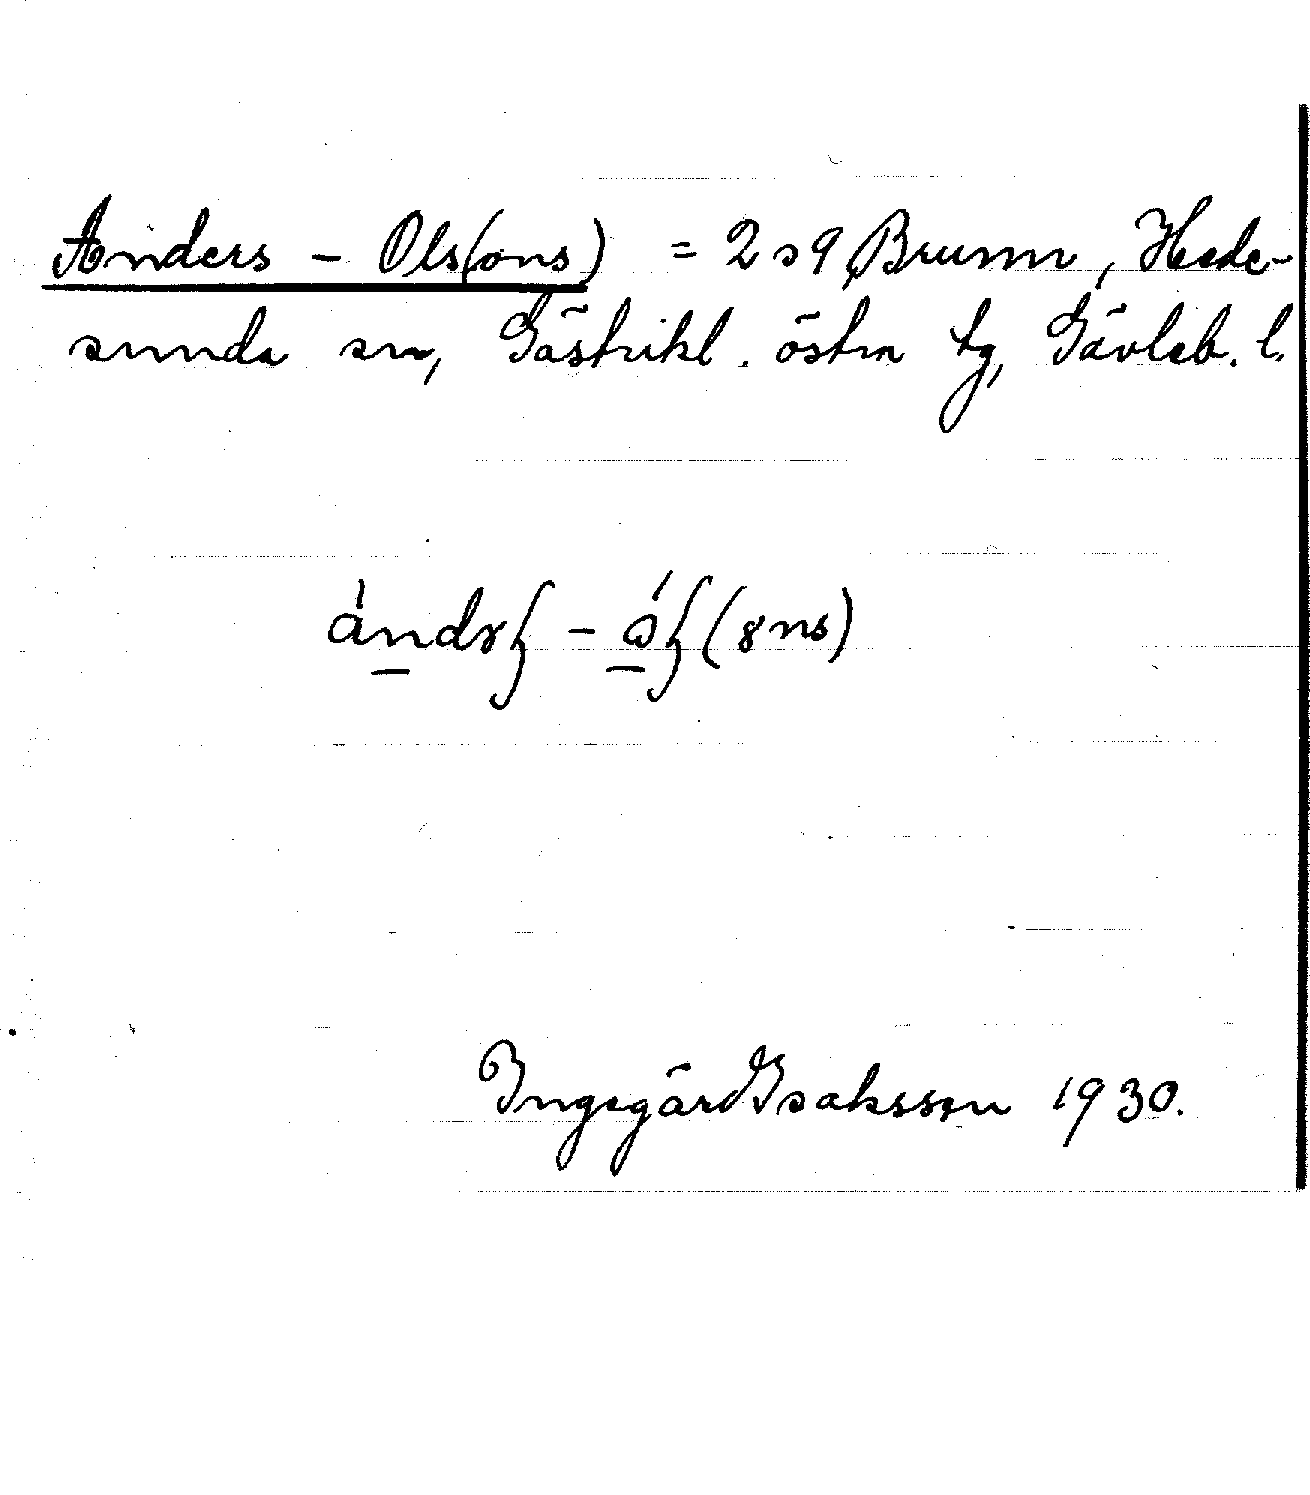 Anders - Ols(ons) = 2 s 9 Brunn, Hede-
sunda sn, Gästrikl. östra tg, Gävleb. l.
Ingegärd Isaksson 1930.